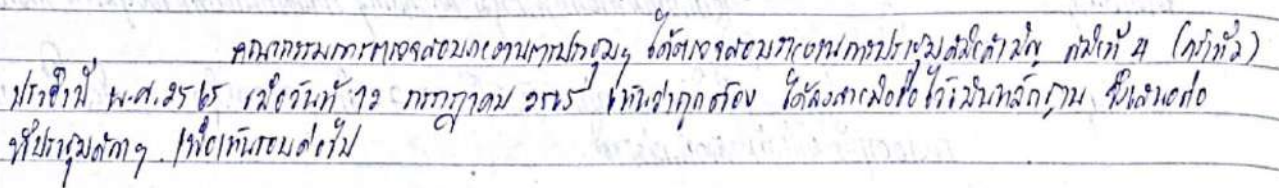 คณะกรรมการตรวจสอบรายงานการประชุมฯ ได้ตรวจสอบรายงานการประชุมสมัยสามัญ สมัยที่ 2 (ครั้งที่ 2)
ประจำปี พ.ศ. 2565 เมื่อวันที่ 12 กรกฎาคม 2565 เห็นว่าถูกต้อง ได้ลงลายมือชื่อไว้เป็นหลักฐาน จึงเสนอต่อ
ที่ประชุมสภาฯ เพื่อเห็นชอบต่อไป